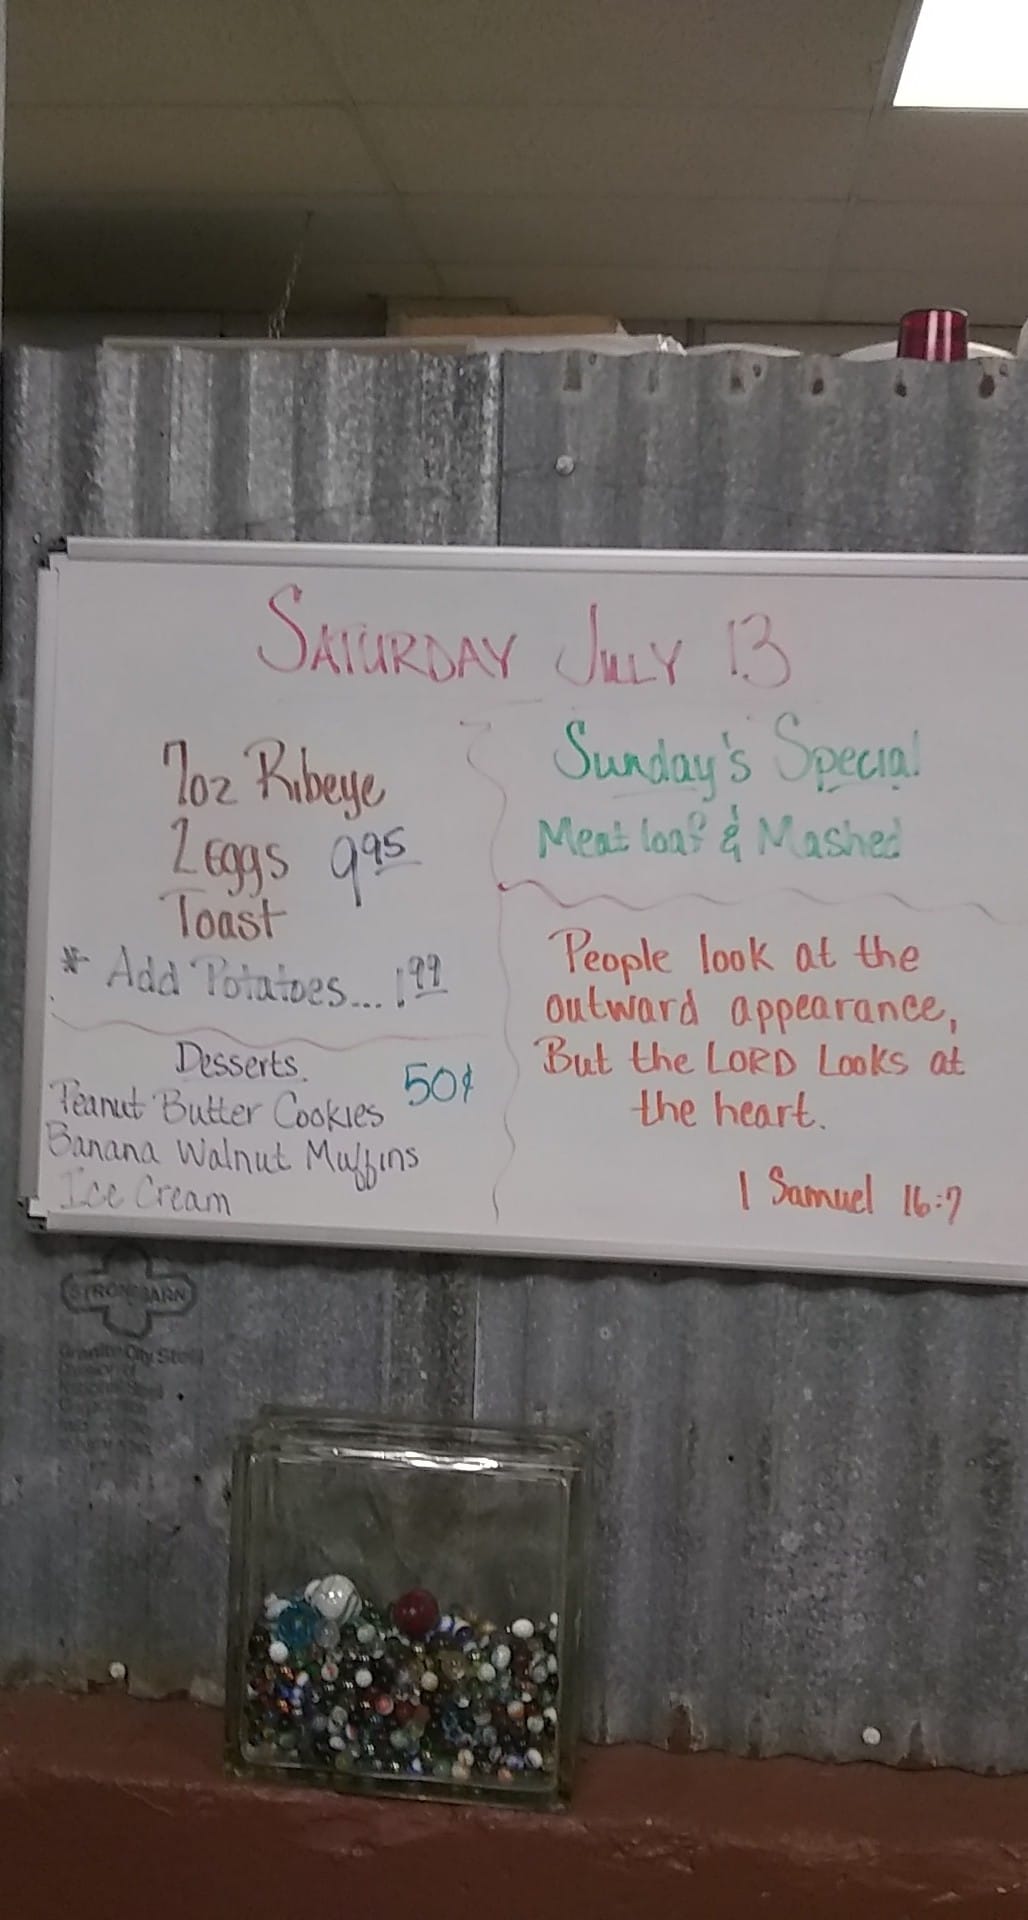 SATURDAY JULY 13
7oz Ribeye
2 Eggs 9.95
Toast
* Add Potatoes... 1.99
Desserts
50¢
Peanut Butter Cookies
Banana Walnut Muffins
Ice Cream
Sunday's Special
Meat loaf & Mashed
People look at the
outward appearance,
But the LORD Looks at
the heart.
1 Samuel 16:7
STRONGBARN
Granite City Steel